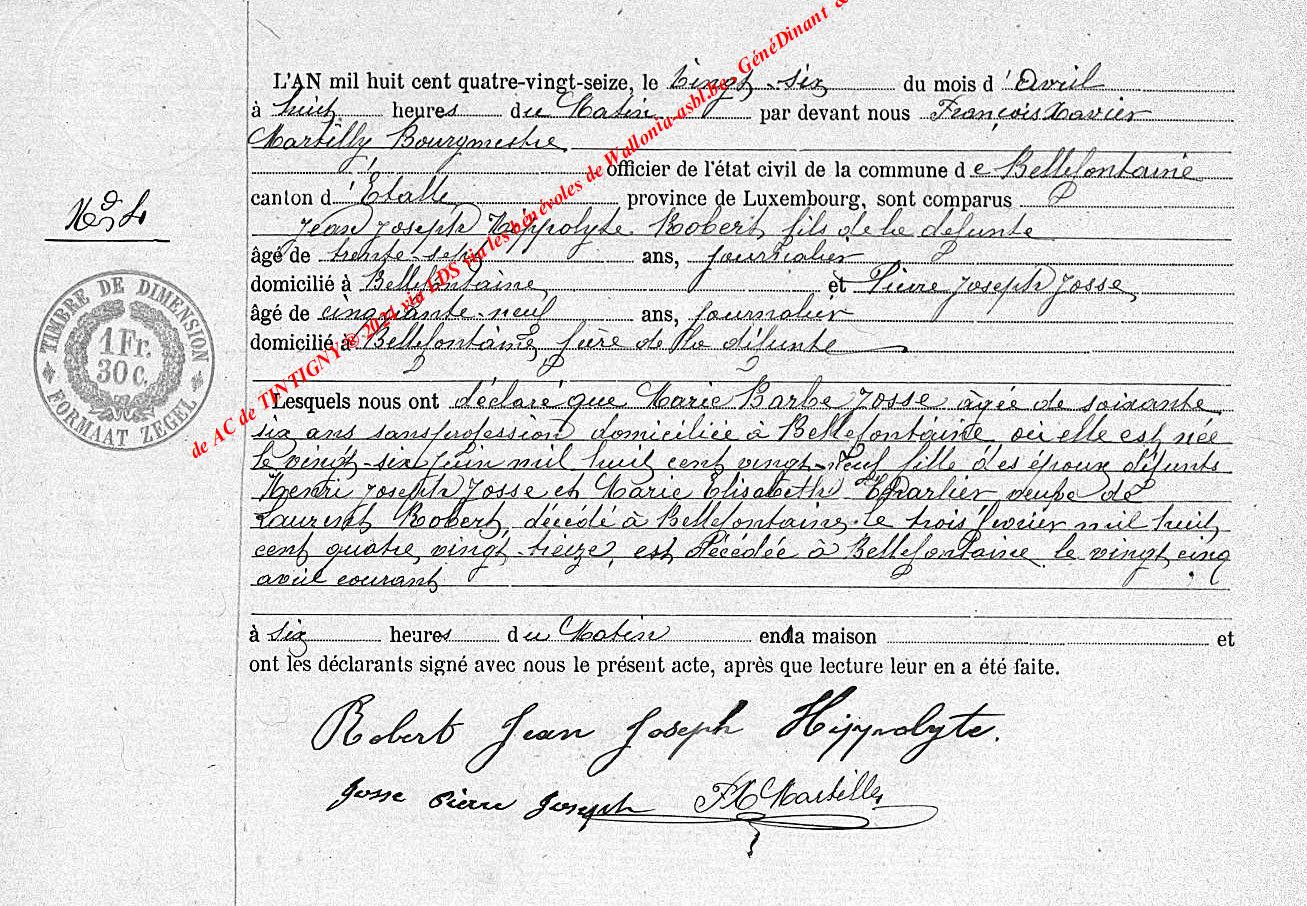 L'AN mil huit cent quatre-vingt-seize, le vingt-six du mois d'Avril
à huit heures du Matin par devant nous François Xavier
Martilly Bourgmestre
officier de l'état civil de la commune de Bellefontaine
canton d'Etalle province de Luxembourg, sont comparus
Jean Joseph Hippolyte Robert, fils de la défunte
âgé de trente-sept ans, journalier
domicilié à Bellefontaine, et Pierre Joseph Josse,
âgé de cinquante-neuf ans, journalier
domicilié à Bellefontaine, frère de la défunte
Lesquels nous ont déclaré que Marie Barbe Josse âgée de soixante
six ans sans profession domiciliée à Bellefontaine où elle est née
le vingt-six Juin mil huit cent vingt-neuf fille des époux défunts
Henri Joseph Josse et Marie Elisabeth Charlier veuve de
Laurent Robert, décédé à Bellefontaine le trois février mil huit
cent quatre vingt-treize, est décédée à Bellefontaine le vingt cinq
avril courant
à six heures du Matin en la maison et
ont les déclarants signé avec nous le présent acte, après que lecture leur en a été faite.
Robert Jean Joseph Hippolyte.
Josse Pierre Joseph FX Martilly
TIMBRE DE DIMENSION
1 Fr.
30 c.
FORMAAT ZEGEL
de AC de TINTIGNY @ 2024 via LDS via les bénévoles de Wallonia-asbl.be, GénéDinant &